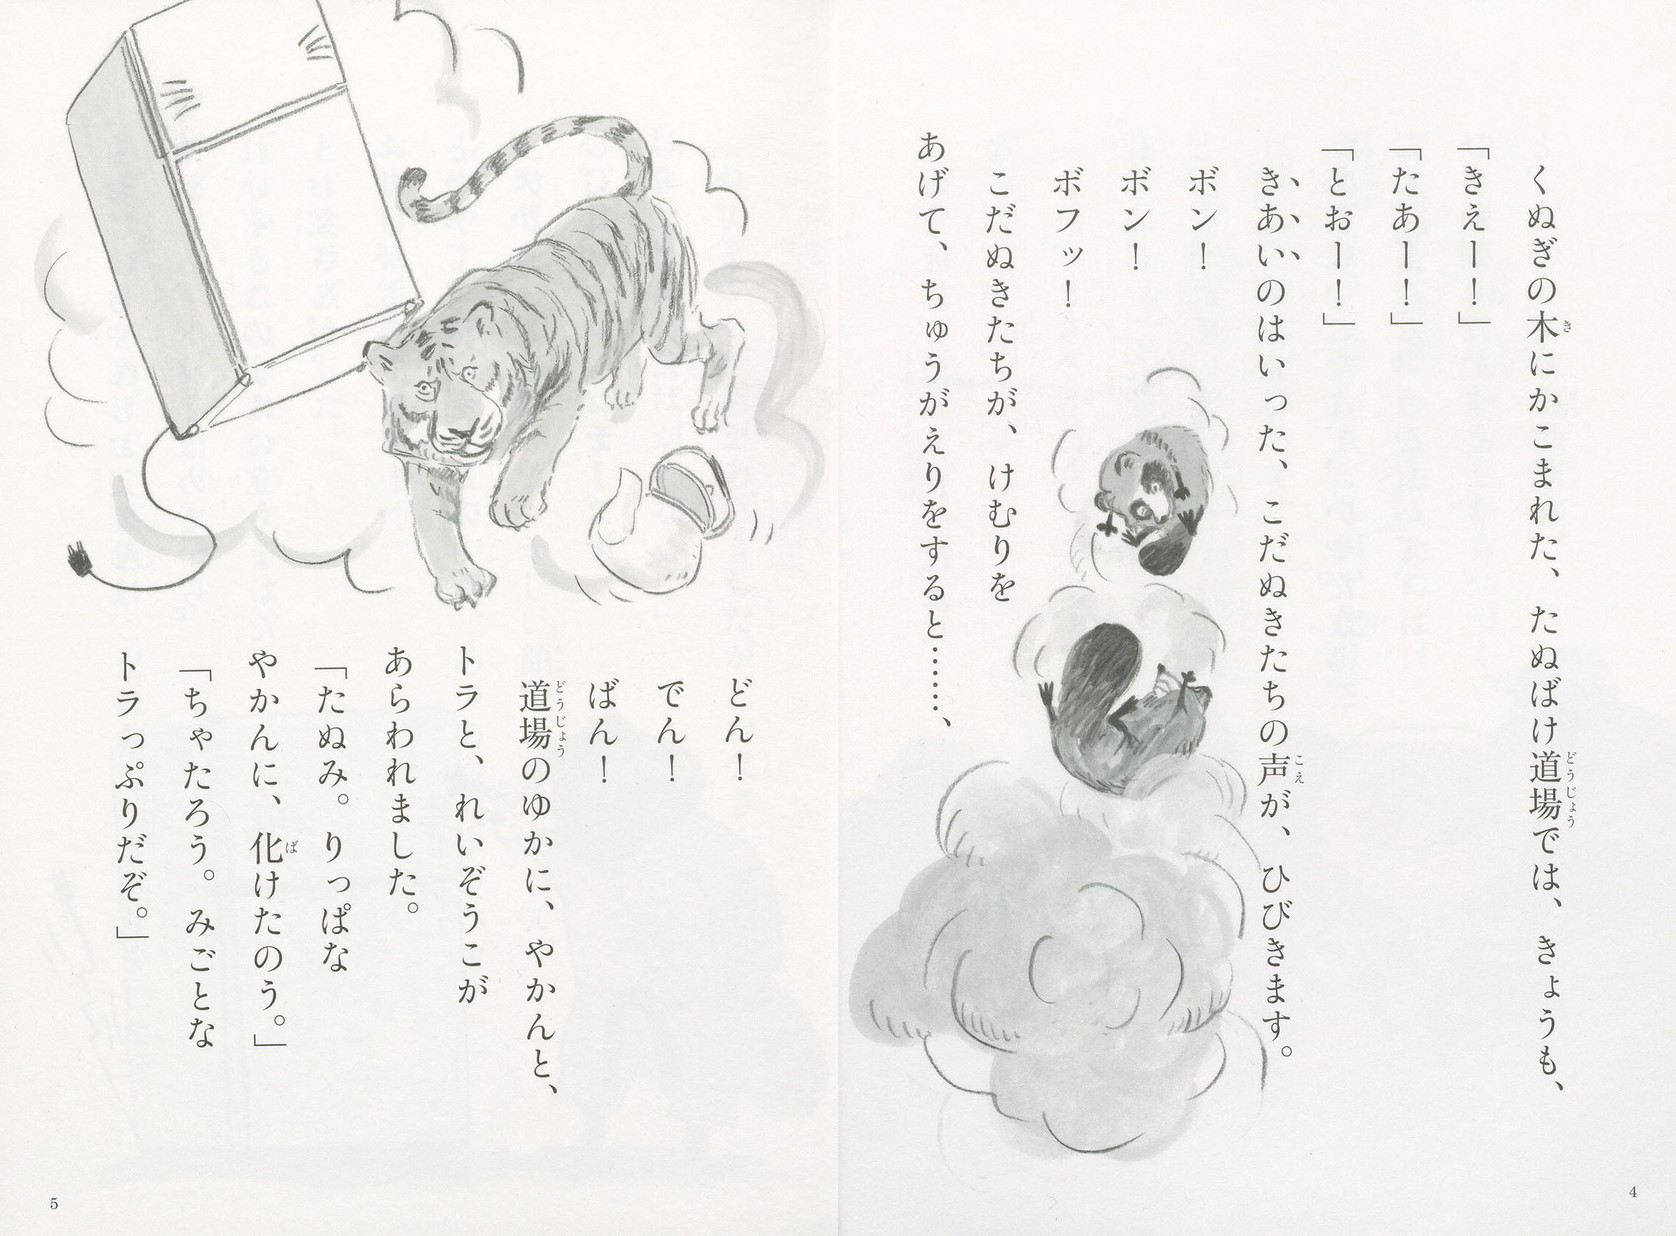 くぬぎの木にかこまれた、たぬばけ道場では、きょうも、
「きえー！」
「たあー！」
「とおー！」
きあいのはいった、こだぬきたちの声が、ひびきます。
ボン！
ボン！
ボフッ！
こだぬきたちが、けむりを
あげて、ちゅうがえりをすると……、
4
どん！
でん！
ばん！
道場のゆかに、やかんと、
トラと、れいぞうこが
あらわれました。
「たぬみ。りっぱな
やかんに、化けたのう。」
「ちゃたろう。みごとな
トラっぷりだぞ。」
5